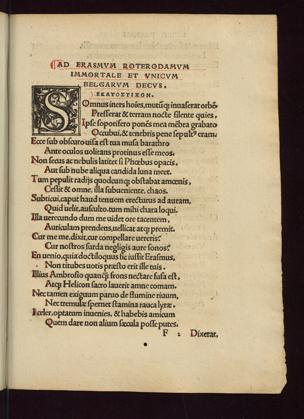 AD ERASMVM ROTERODAMVM
IMMORTALE ET VNICVM
BELGARVM DECVS,
ΕΚΑΤΟΣΤΙΧΟΝ.
SOmnus iners hoīes, mutusq; inuaserat orbē
Presserat & terram nocte silente quies,
Ipse soporifero ponēs mea mēbra grabato
Occubui, & tenebris pene sepult⁹ eram.
Ecce sub obscuro uisa est tua musa barathro
Ante oculos uolitans protinus esse meos.
Non secus ac nebulis latitet si Phœbus opacis,
Aut sub nube aliqua candida luna micet.
Tum pepulit radijs quodcunq; obstabat amœnis,
Cessit & omne. illa subueniente. chaos.
Subticui, caput haud tenuem erecturus ad auram,
Quid uelit, ausculto. tum mihi chara loqui.
Illa uerecundo dum me uidet ore tacentem,
Auriculam prendens, uellicat atq; premit.
Cur me me, dixit, cur compellare uereris?
Cur nostros surda negligis aure sonos?
En uenio, quia doctiloquus sic iussit Erasmus,
Non titubes uotis præsto erit ille tuis.
Illius Ambrosio quancq; frons nectare fusa est,
Atq; Helicon sacro lauerit amne comam.
Nec tamen exiguum paruo de flumine riuum,
Nec tremulæ spernet stamina rauca lyræ.
I celer, optatum inuenies, & habebis amicum
Quem dare non alium sæcula posse putes.
F 2 Dixerat.